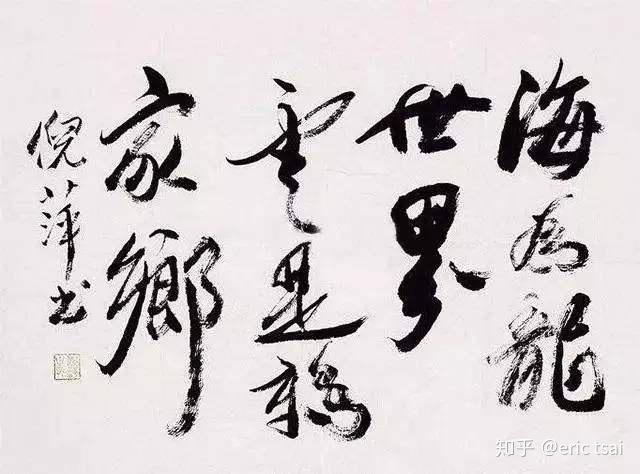 海為龍
世界
雲是鶴
家鄉
倪萍书
知乎 @eric tsai